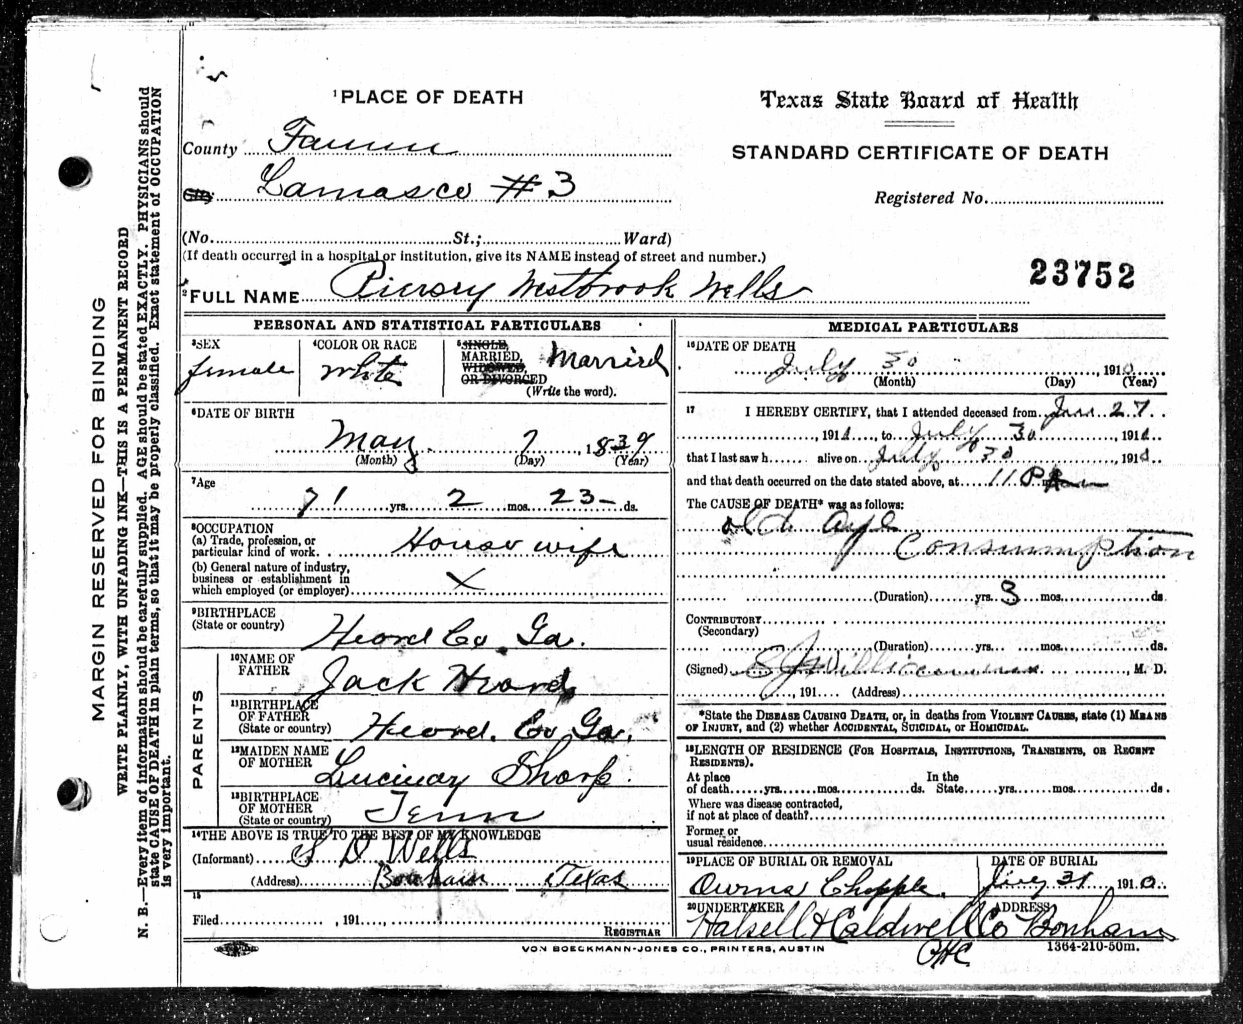 MARGIN RESERVED FOR BINDING
WRITE PLAINLY, WITH UNFADING INK—THIS IS A PERMANENT RECORD
N. B.—Every item of information should be carefully supplied. AGE should be stated EXACTLY. PHYSICIANS should
state CAUSE OF DEATH in plain terms, so that it may be properly classified. Exact statement of OCCUPATION
is very important.
1 PLACE OF DEATH
County Fannin
City Lamasco #3
(No. St.; Ward)
(If death occurred in a hospital or institution, give its NAME instead of street and number.)
Texas State Board of Health
STANDARD CERTIFICATE OF DEATH
Registered No.
23752
2 FULL NAME Piersey Westbrook Wells
PERSONAL AND STATISTICAL PARTICULARS
3 SEX
female
4 COLOR OR RACE
White
5 SINGLE,
MARRIED,
WIDOWED,
OR DIVORCED
(Write the word).
Married
6 DATE OF BIRTH
May 7, 1839
(Month) (Day) (Year)
7 Age
71 yrs. 2 mos. 23 ds.
8 OCCUPATION
(a) Trade, profession, or
particular kind of work. House wife
(b) General nature of industry,
business or establishment in
which employed (or employer) X
9 BIRTHPLACE
(State or country) Heard Co. Ga.
PARENTS
10 NAME OF
FATHER Jack Heard
11 BIRTHPLACE
OF FATHER
(State or country) Heard. Co Ga.
12 MAIDEN NAME
OF MOTHER Sharp.
13 BIRTHPLACE
OF MOTHER
(State or country) Tenn
14 THE ABOVE IS TRUE TO THE BEST OF MY KNOWLEDGE
(Informant) S D Wells
(Address) Bonham Texas
15
Filed , 191
REGISTRAR
MEDICAL PARTICULARS
16 DATE OF DEATH
July 30, 1910
(Month) (Day) (Year)
17 I HEREBY CERTIFY, that I attended deceased from 27
, 1910, to July 30, 1910
that I last saw h alive on July 30, 1910
and that death occurred on the date stated above, at 11 P m
The CAUSE OF DEATH* was as follows:
old age
Consumption
(Duration) yrs. 3 mos. ds.
CONTRIBUTORY
(Secondary)
(Duration) yrs. mos. ds.
(Signed) , M. D.
, 191 (Address)
*State the DISEASE CAUSING DEATH, or, in deaths from VIOLENT CAUSES, state (1) MEANS
OF INJURY, and (2) whether ACCIDENTAL, SUICIDAL, or HOMICIDAL.
18 LENGTH OF RESIDENCE (FOR HOSPITALS, INSTITUTIONS, TRANSIENTS, OR RECENT
RESIDENTS).
At place
of death yrs. mos. ds.
In the
State yrs. mos. ds.
Where was disease contracted,
if not at place of death?
Former or
usual residence
19 PLACE OF BURIAL OR REMOVAL
DATE OF BURIAL
31 1910
20 UNDERTAKER
ADDRESS
Halsell & Caldwell Co Bonham
VON BOECKMANN-JONES CO., PRINTERS, AUSTIN
1364-210-50m.